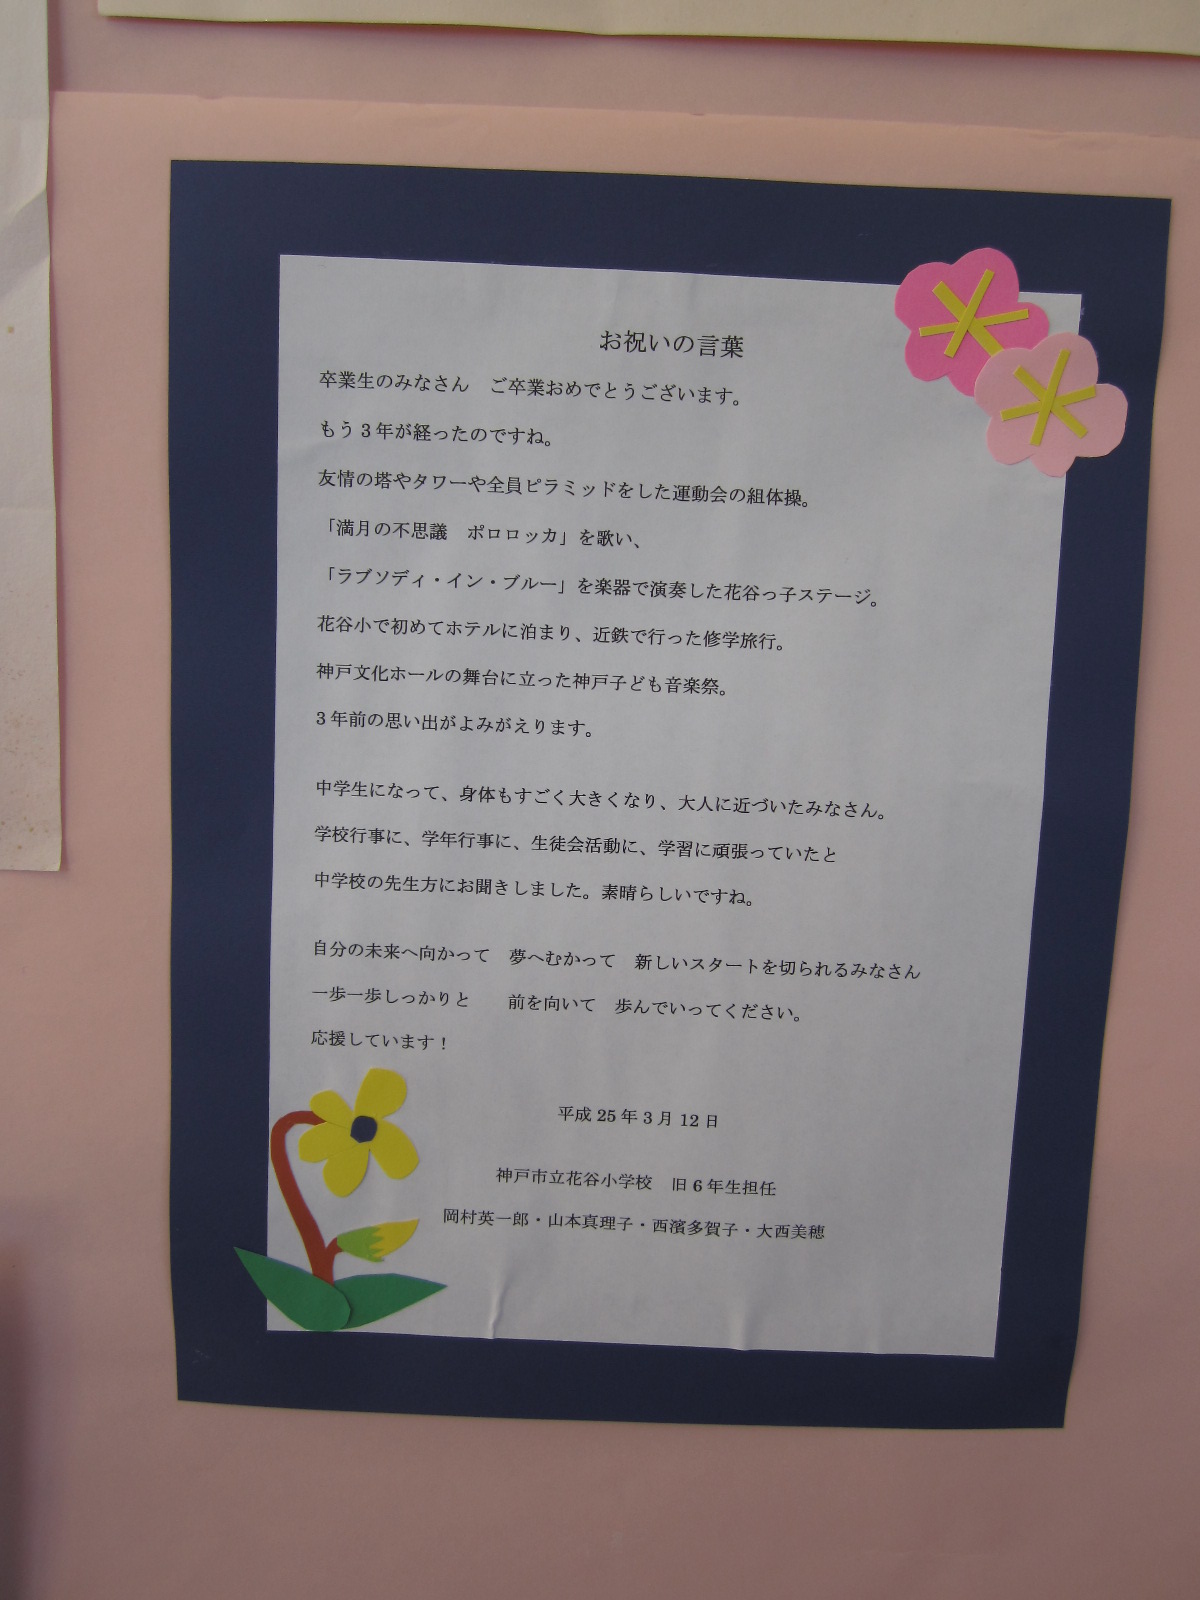 お祝いの言葉
卒業生のみなさん　ご卒業おめでとうございます。
もう3年が経ったのですね。
友情の塔やタワーや全員ピラミッドをした運動会の組体操。
「満月の不思議　ポロロッカ」を歌い、
「ラブソディ・イン・ブルー」を楽器で演奏した花谷っ子ステージ。
花谷小で初めてホテルに泊まり、近鉄で行った修学旅行。
神戸文化ホールの舞台に立った神戸子ども音楽祭。
3年前の思い出がよみがえります。
中学生になって、身体もすごく大きくなり、大人に近づいたみなさん。
学校行事に、学年行事に、生徒会活動に、学習に頑張っていたと
中学校の先生方にお聞きしました。素晴らしいですね。
自分の未来へ向かって　夢へむかって　新しいスタートを切られるみなさん
一歩一歩しっかりと　　前を向いて　歩んでいってください。
応援しています！
平成25年3月12日
神戸市立花谷小学校　旧6年生担任
岡村英一郎・山本真理子・西濱多賀子・大西美穂